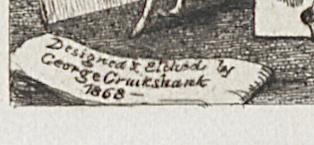 Designed & Etched by
George Cruikshank
1868 —